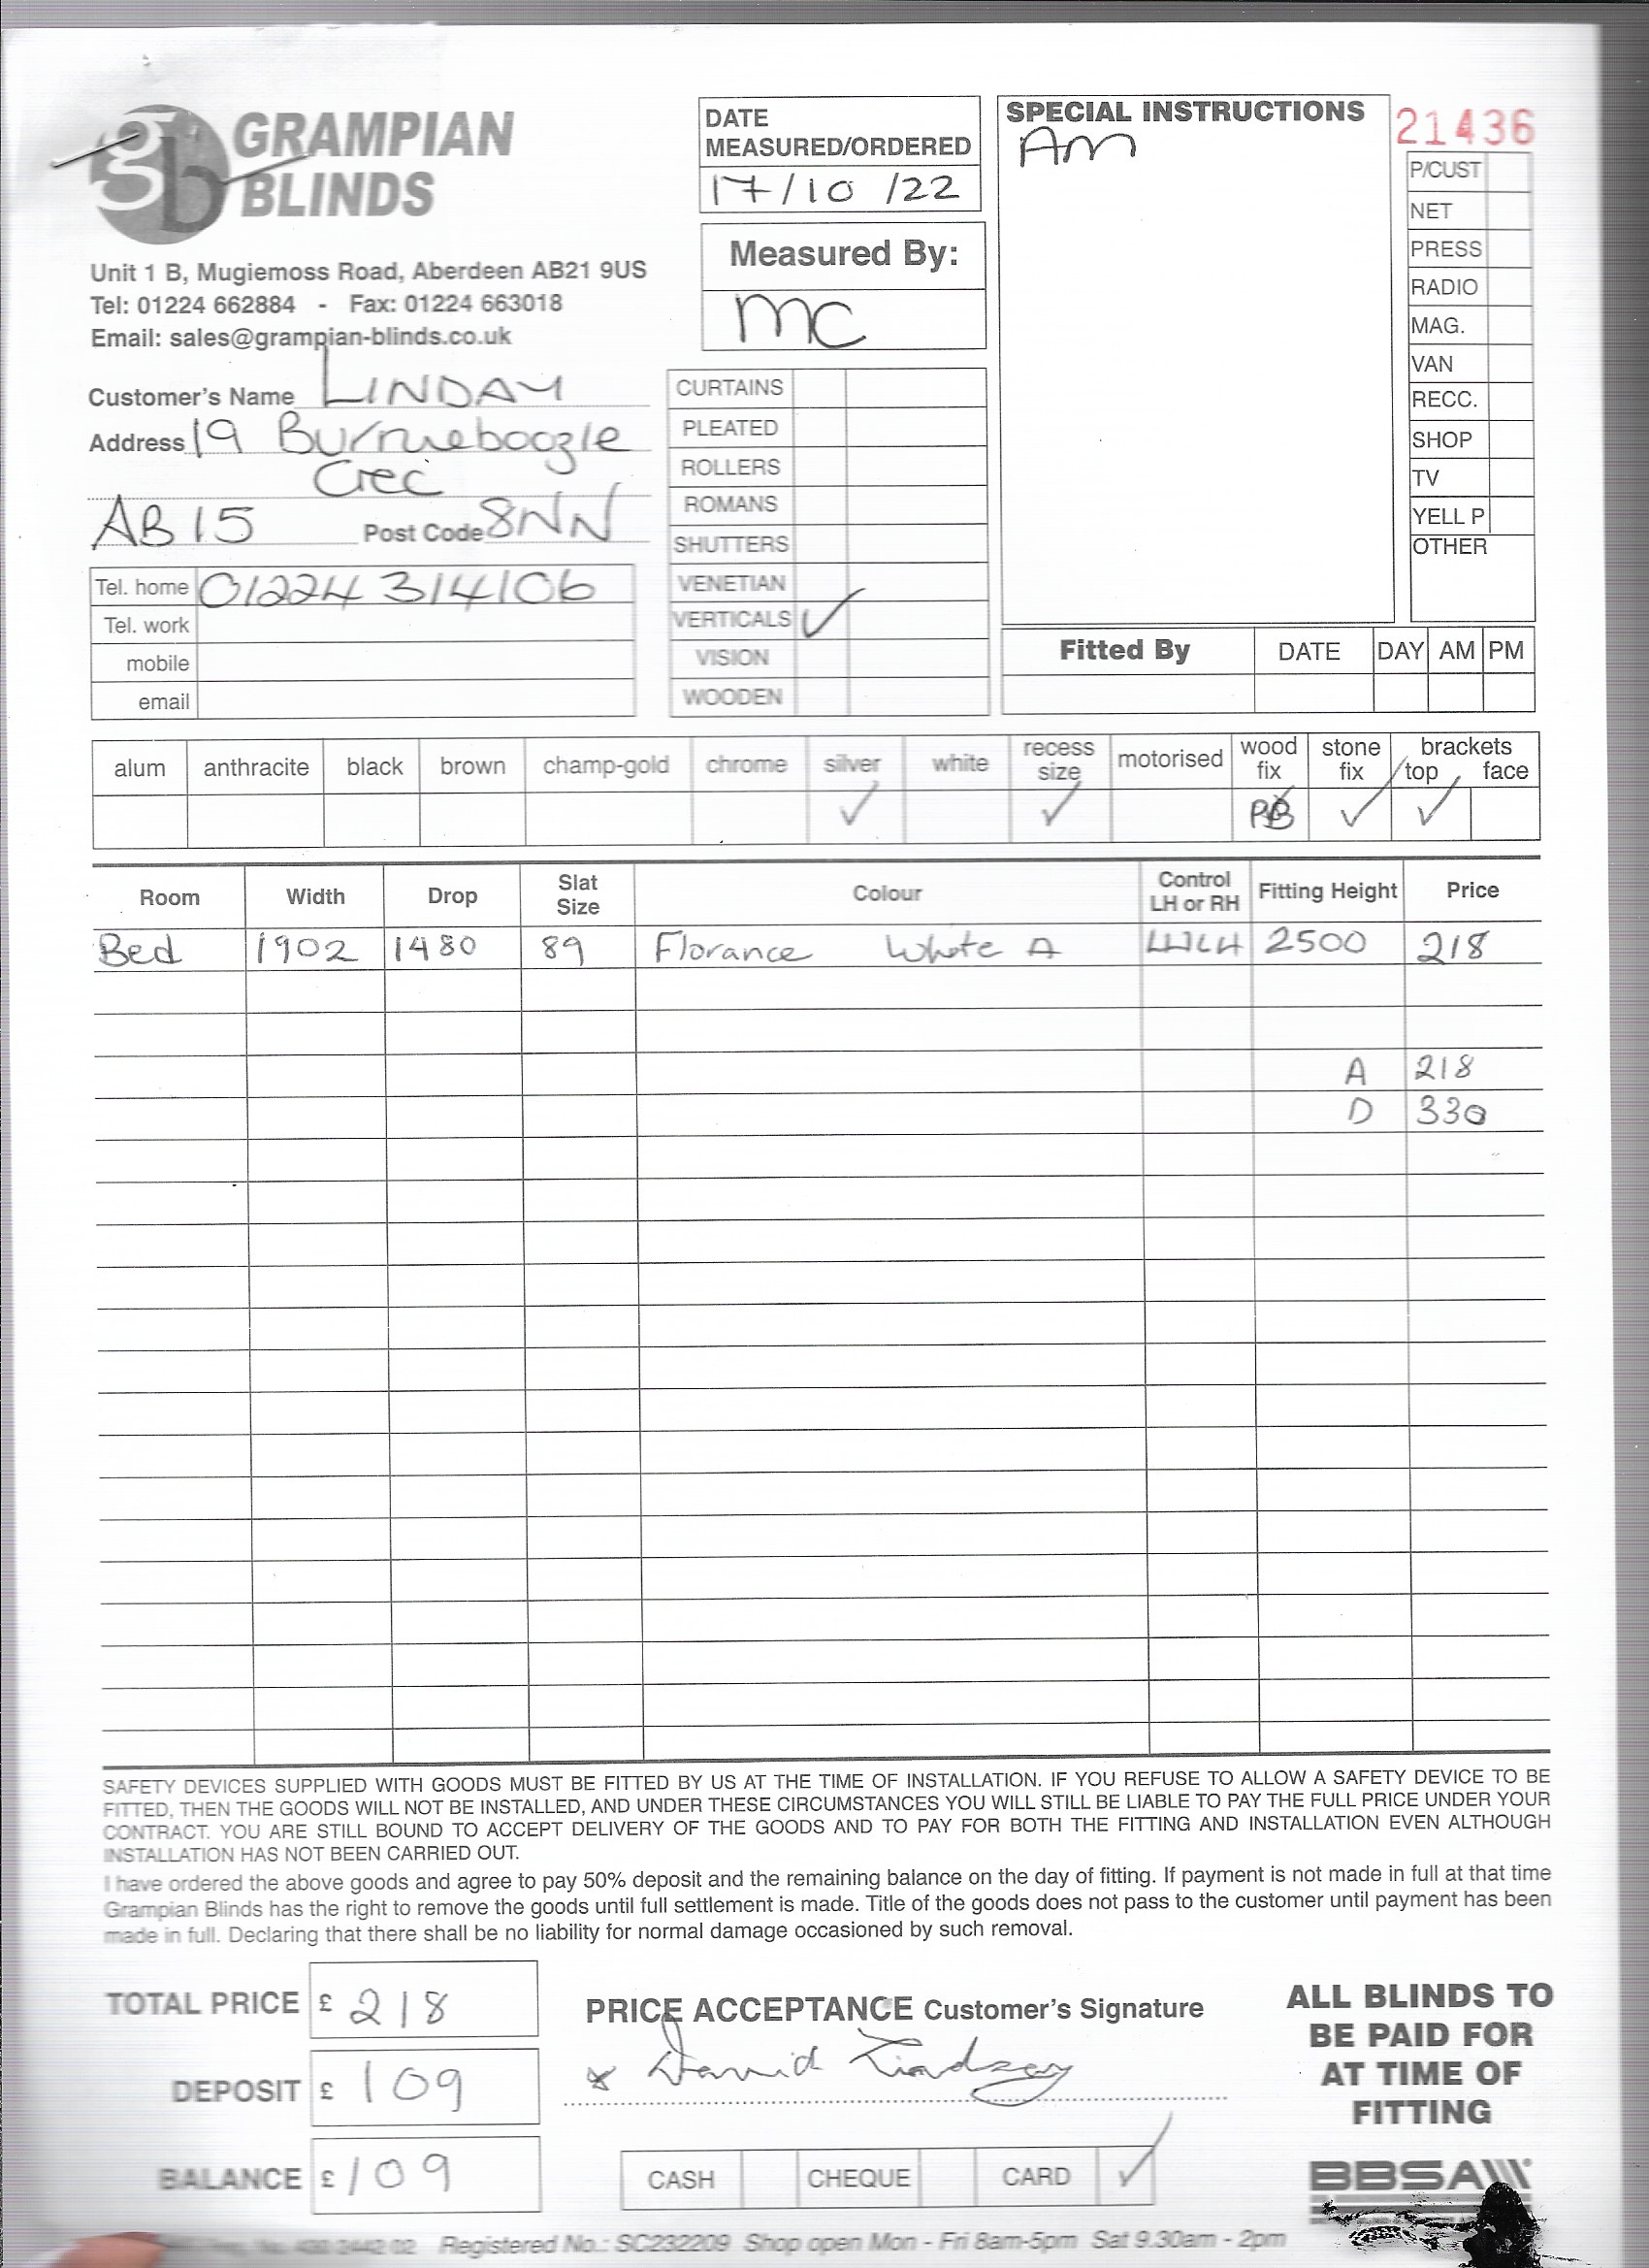 GRAMPIAN
BLINDS
Unit 1 B, Mugiemoss Road, Aberdeen AB21 9US
Tel: 01224 662884 - Fax: 01224 663018
Email: sales@grampian-blinds.co.uk
DATE
MEASURED/ORDERED
17/10/22
Measured By:
MC
SPECIAL INSTRUCTIONS
AM
21436
P/CUST
NET
PRESS
RADIO
MAG.
VAN
RECC.
SHOP
TV
YELL P
OTHER
Customer's Name LINDAY
Address 19 Burnieboozle
Crec
AB15 Post Code 8NN
Tel. home 01224 314106
Tel. work
mobile
email
CURTAINS
PLEATED
ROLLERS
ROMANS
SHUTTERS
VENETIAN
VERTICALS ✓
VISION
WOODEN
Fitted By DATE DAY AM PM
alum anthracite black brown champ-gold chrome silver white recess size motorised wood fix stone fix brackets top face
✓ ✓ ✓ ✓
Room Width Drop Slat Size Colour Control LH or RH Fitting Height Price
Bed 1902 1480 89 Florance White A 2500 218
A 218
D 330
SAFETY DEVICES SUPPLIED WITH GOODS MUST BE FITTED BY US AT THE TIME OF INSTALLATION. IF YOU REFUSE TO ALLOW A SAFETY DEVICE TO BE
FITTED, THEN THE GOODS WILL NOT BE INSTALLED, AND UNDER THESE CIRCUMSTANCES YOU WILL STILL BE LIABLE TO PAY THE FULL PRICE UNDER YOUR
CONTRACT. YOU ARE STILL BOUND TO ACCEPT DELIVERY OF THE GOODS AND TO PAY FOR BOTH THE FITTING AND INSTALLATION EVEN ALTHOUGH
INSTALLATION HAS NOT BEEN CARRIED OUT.
I have ordered the above goods and agree to pay 50% deposit and the remaining balance on the day of fitting. If payment is not made in full at that time
Grampian Blinds has the right to remove the goods until full settlement is made. Title of the goods does not pass to the customer until payment has been
made in full. Declaring that there shall be no liability for normal damage occasioned by such removal.
TOTAL PRICE £ 218
DEPOSIT £ 109
BALANCE £ 109
PRICE ACCEPTANCE Customer's Signature
x David Lindsay
CASH CHEQUE CARD ✓
ALL BLINDS TO
BE PAID FOR
AT TIME OF
FITTING
BBSA
Registered No.: SC232209 Shop open Mon - Fri 8am-5pm Sat 9.30am - 2pm